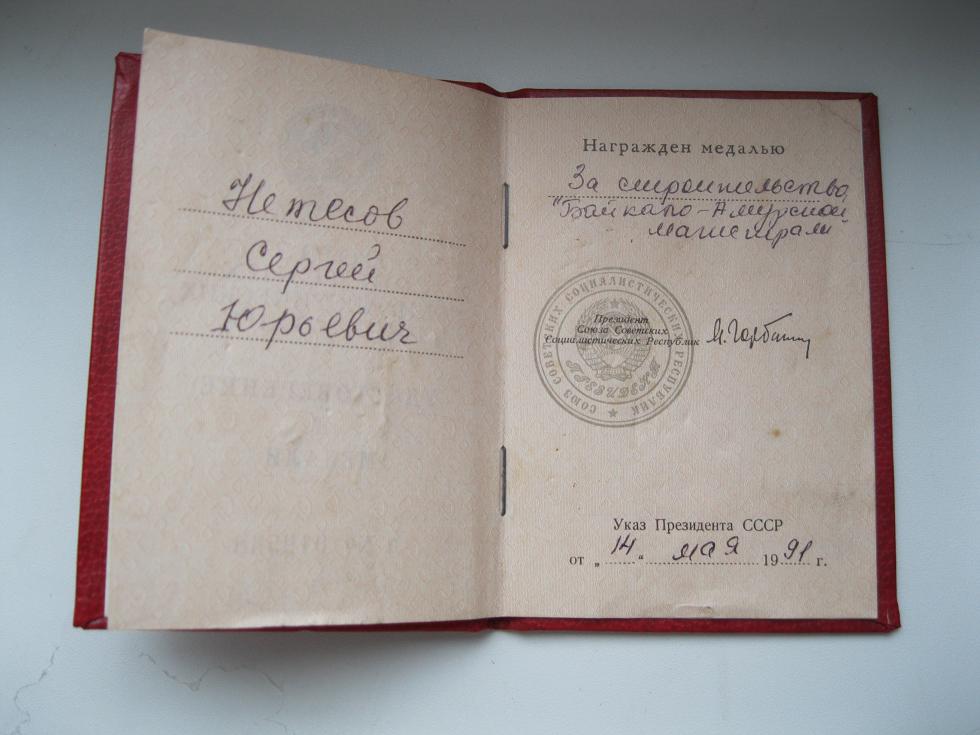 Нетесов
Сергей
Юрьевич
Награжден медалью
За строительство
"Байкало-Амурской
магистрали"
СОЮЗ СОВЕТСКИХ СОЦИАЛИСТИЧЕСКИХ РЕСПУБЛИК
ПРЕЗИДЕНТ
Президент
Союза Советских
Социалистических Республик
М. Горбачев
Указ Президента СССР
от „14“ мая 1991 г.